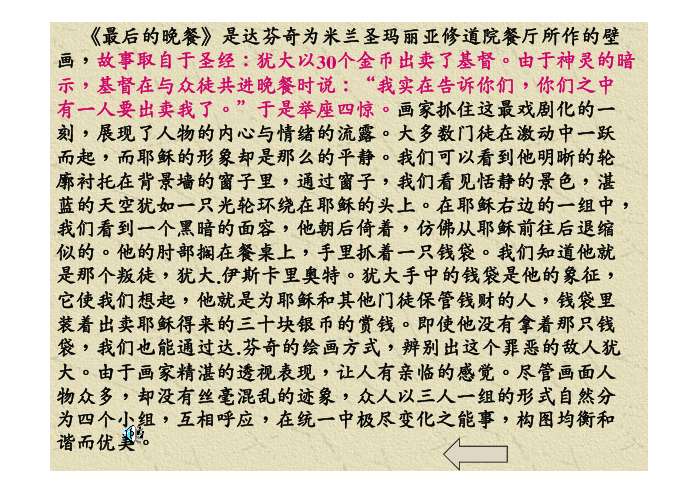 《最后的晚餐》是达芬奇为米兰圣玛丽亚修道院餐厅所作的壁
画，故事取自于圣经：犹大以30个金币出卖了基督。由于神灵的暗
示，基督在与众徒共进晚餐时说：“我实在告诉你们，你们之中
有一人要出卖我了。”于是举座四惊。画家抓住这最戏剧化的一
刻，展现了人物的内心与情绪的流露。大多数门徒在激动中一跃
而起，而耶稣的形象却是那么的平静。我们可以看到他明晰的轮
廓衬托在背景墙的窗子里，通过窗子，我们看见恬静的景色，湛
蓝的天空犹如一只光轮环绕在耶稣的头上。在耶稣右边的一组中，
我们看到一个黑暗的面容，他朝后倚着，仿佛从耶稣前往后退缩
似的。他的肘部搁在餐桌上，手里抓着一只钱袋。我们知道他就
是那个叛徒，犹大.伊斯卡里奥特。犹大手中的钱袋是他的象征，
它使我们想起，他就是为耶稣和其他门徒保管钱财的人，钱袋里
装着出卖耶稣得来的三十块银币的赏钱。即使他没有拿着那只钱
袋，我们也能通过达.芬奇的绘画方式，辨别出这个罪恶的敌人犹
大。由于画家精湛的透视表现，让人有亲临的感觉。尽管画面人
物众多，却没有丝毫混乱的迹象，众人以三人一组的形式自然分
为四个小组，互相呼应，在统一中极尽变化之能事，构图均衡和
谐而优美。